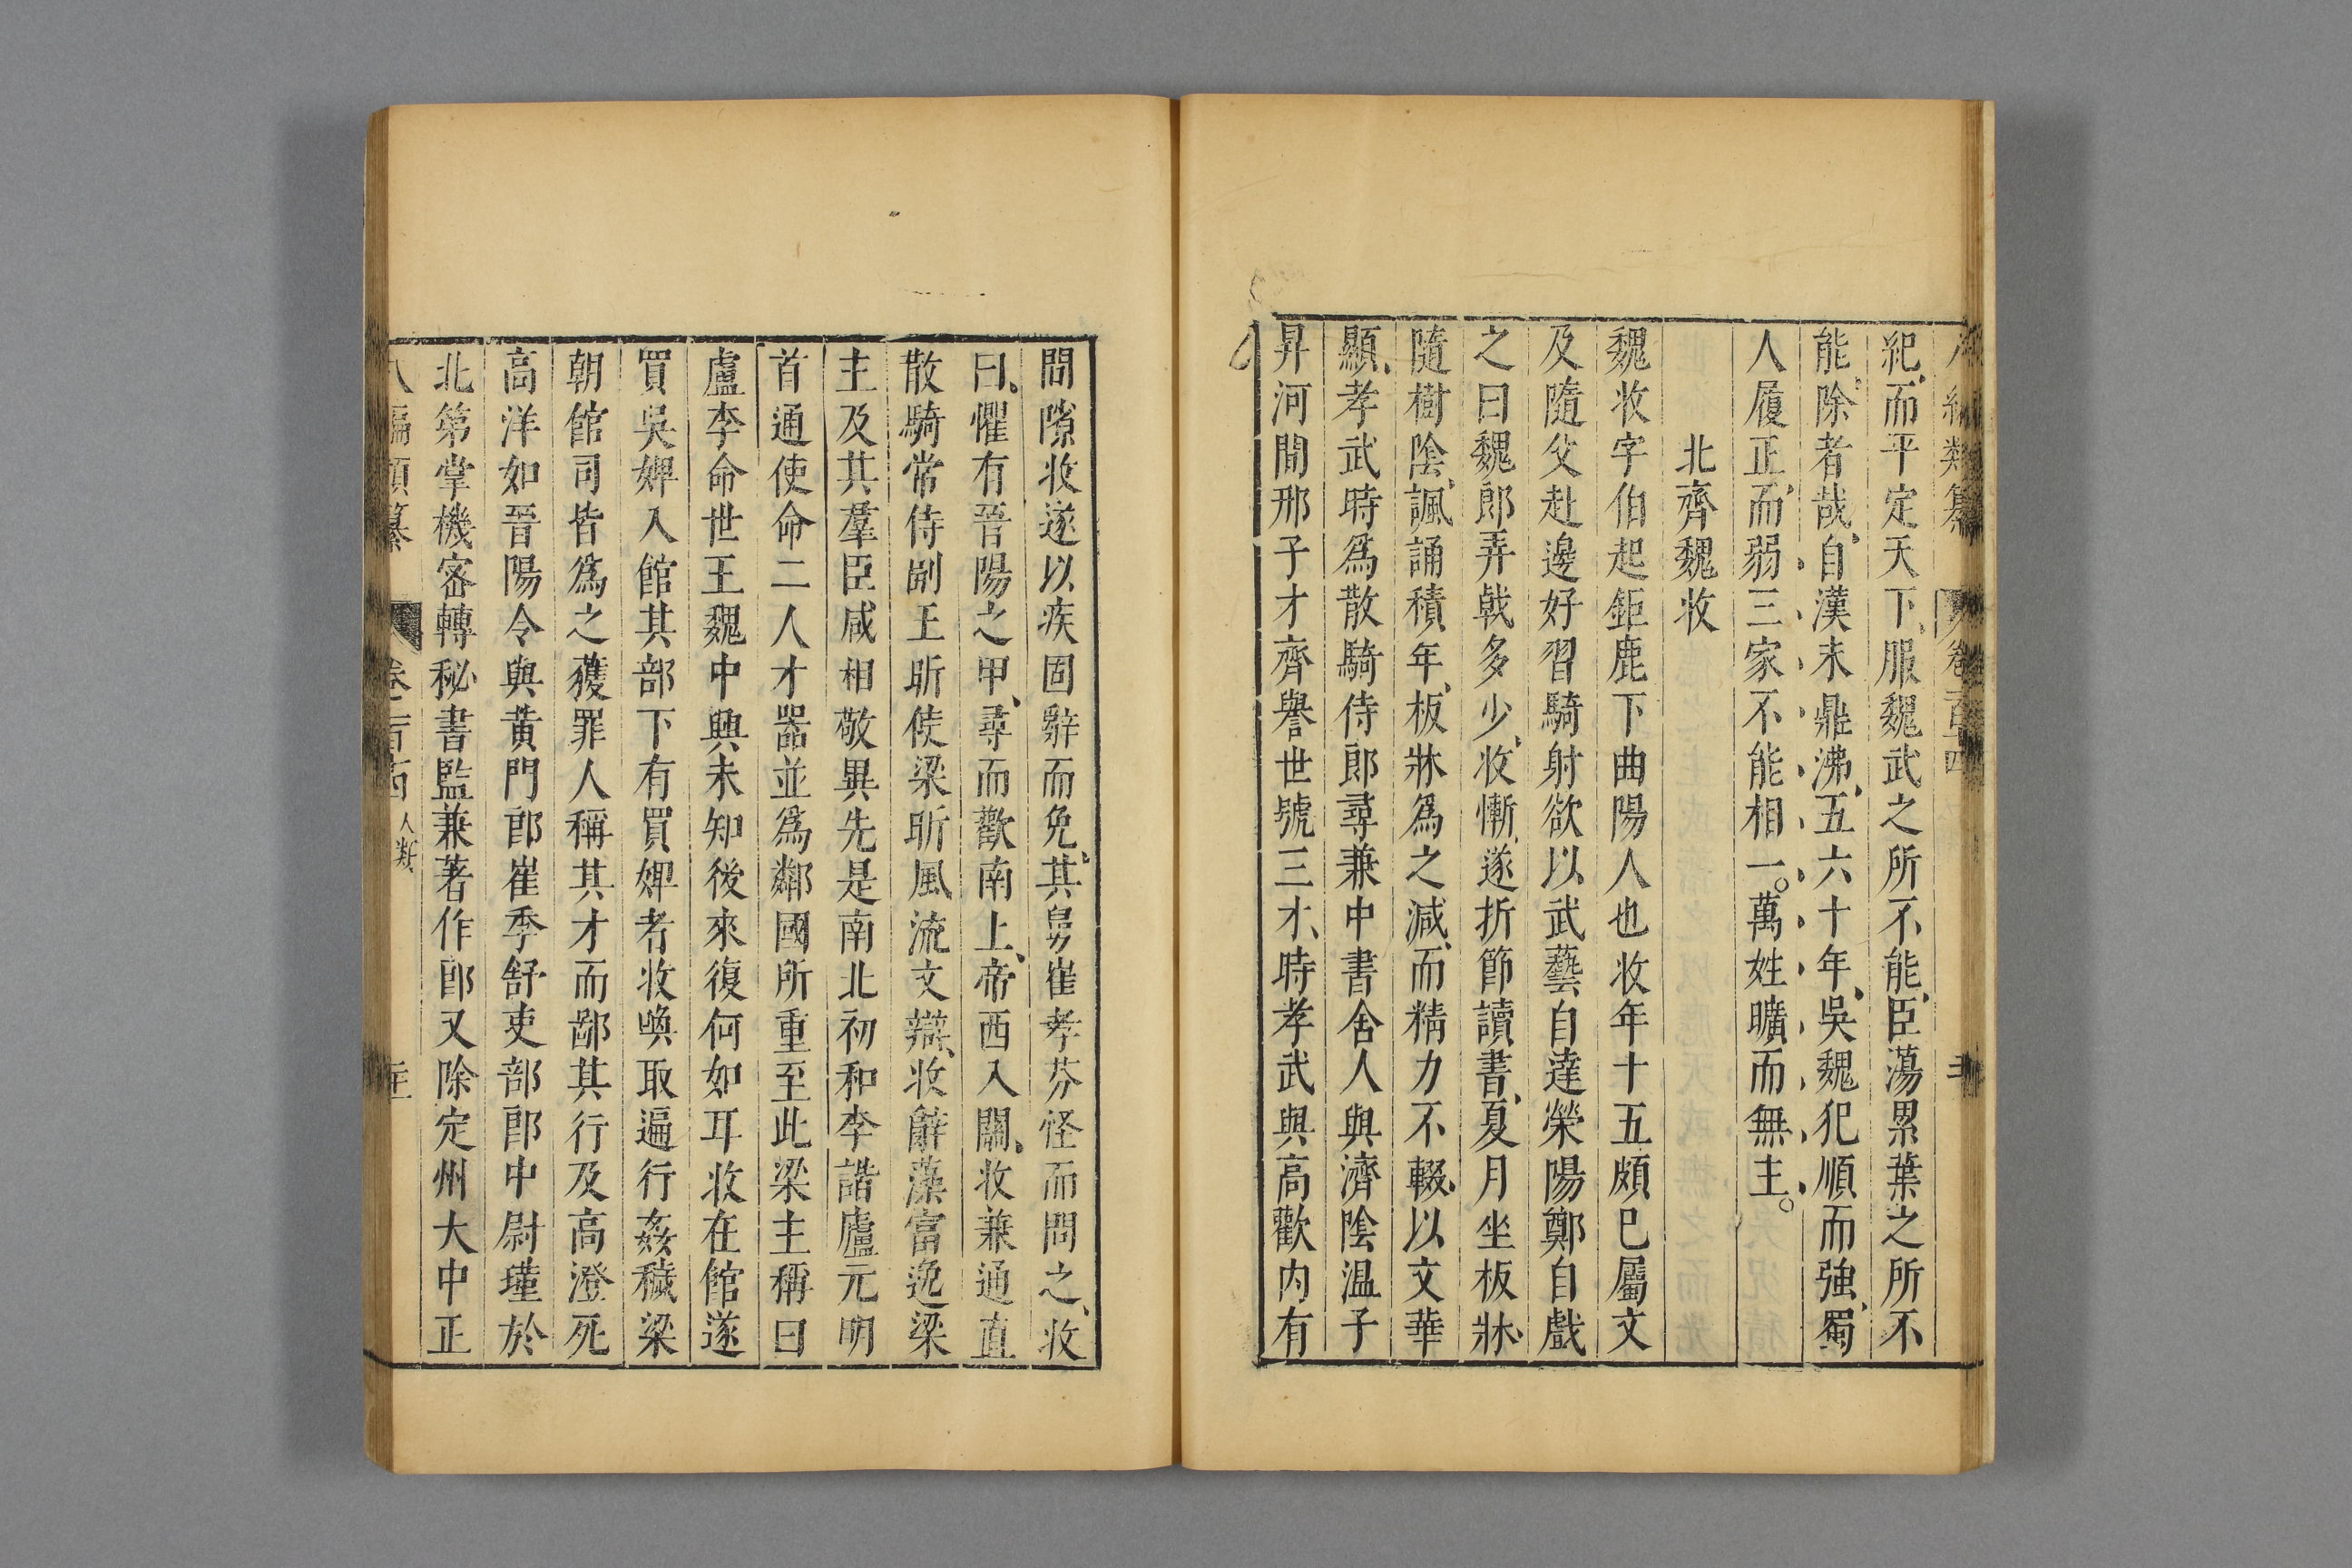 紀、而平定天下、服魏武之所不能、臣蕩累葉之所不
能、除者哉、自漢末鼎沸、五六十年、吳魏犯順而強、蜀
人履正、而弱、三家不能相一。萬姓曠而無主。
北齊魏收
魏收字伯起鉅鹿下曲陽人也收年十五頗巳屬文
及隨父赴邊好習騎射欲以武藝自達榮陽鄭自戲
之曰魏郎弄戟多少、收慚、遂折節讀書、夏月坐板牀、
隨樹陰、諷誦積年、板牀爲之減、而精力不輟、以文華
顯、孝武時爲散騎侍郎尋兼中書舍人與濟陰温子
昇河間邢子才齊譽世號三才、時孝武與高歡内有
間隙收遂以疾固辭而免、其舅崔孝芬怪而問之、收
曰、懼有晉陽之甲、尋而歡南上、帝西入關、收兼通直
散騎常侍副王昕使梁昕風流文辯、收辭藻富逸梁
主及其羣臣咸相敬異先是南北初和李諧盧元明
首通使命二人才器並爲鄰國所重至此梁主稱曰
盧李命世王魏中興未知後來復何如耳收在館遂
買吳婢入館其部下有買婢者收喚取遍行姦穢梁
朝館司皆爲之獲罪人稱其才而鄙其行及高澄死
高洋如晉陽令與黃門郎崔季舒吏部郎中尉瑾於
北第掌機密轉秘書監兼著作郎又除定州大中正